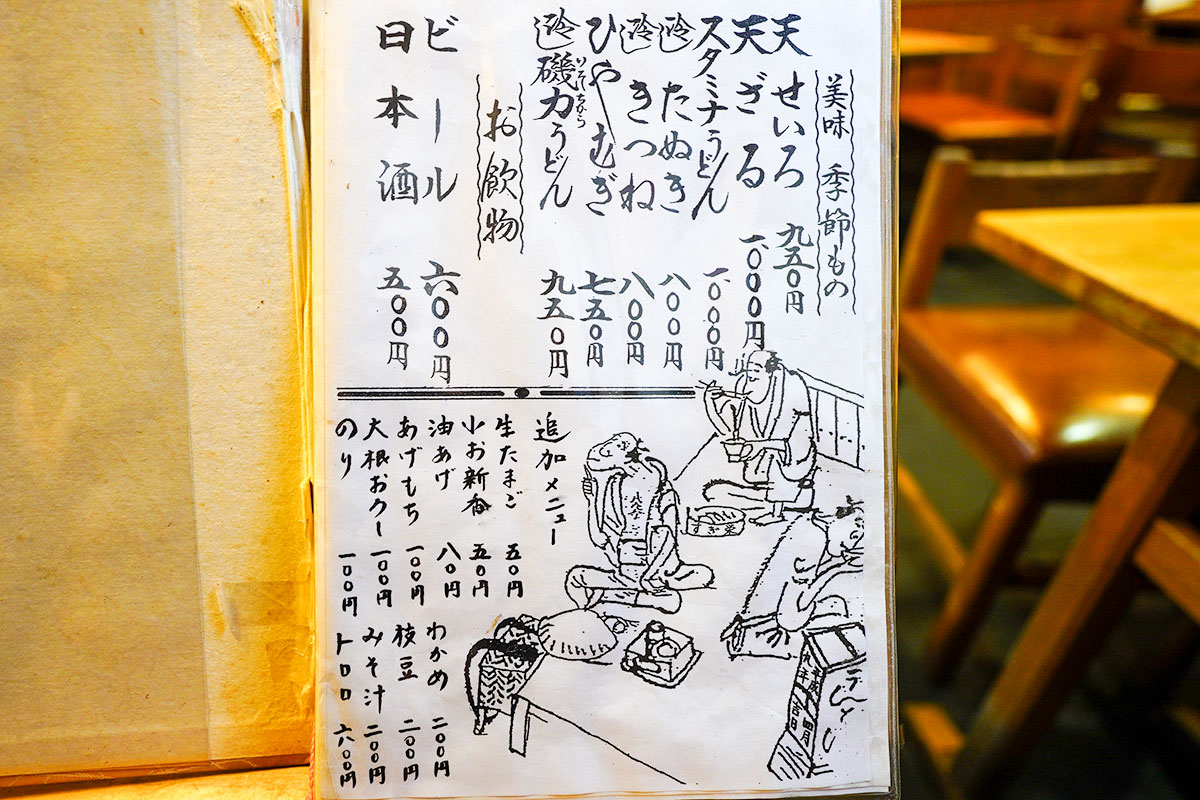 美味 季節もの
天せいろ 九五〇円
天ざる 一、〇〇〇円
スタミナうどん 一、〇〇〇円
冷たぬき 八〇〇円
冷きつね 八〇〇円
ひやむぎ 七五〇円
冷磯力うどん 九五〇円
お飲物
ビール 六〇〇円
日本酒 五〇〇円
追加メニュー
生たまご 五〇円
小お新香 五〇円
油あげ 八〇円
あげもち 一〇〇円
大根おろし 一〇〇円
のり 一〇〇円
わかめ 二〇〇円
枝豆 二〇〇円
みそ汁 二〇〇円
トロロ 六〇〇円
平成 四月
九年 吉日